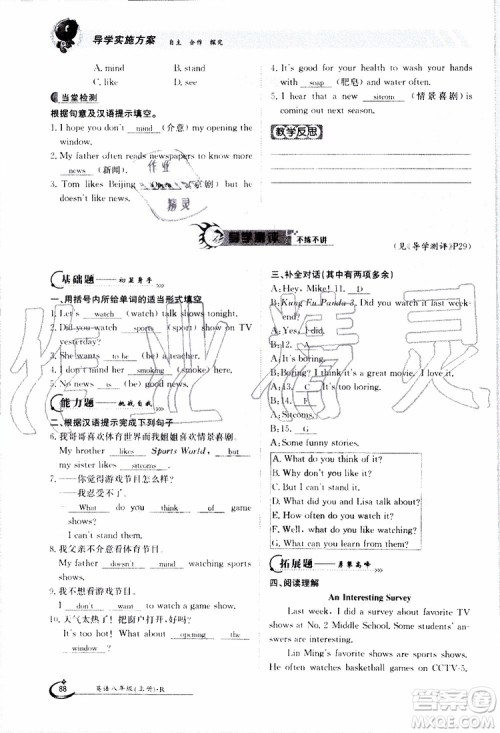 导学实施方案 自主 合作 探究
A. mind B. stand
C. like D. see
当堂检测
根据句意及汉语提示填空。
1. I hope you don't mind (介意) my opening the
window.
2. My father often reads newspapers to know
3. Tom likes Beijing (京剧) but his
4. Don't forget to wash your hands
with soap (肥皂) for your health.
5. I hear that a new sitcom (情景喜剧) is
coming out next season.
教学反思
导学测评 不练不讲
(见《导学测评》P29)
基础题 初显身手
一、用括号内所给单词的适当形式填空。
1. Let's watch (watch) talk shows tonight.
2. Did you watch (watch) a talk show on TV
yesterday?
3. She wants to be (be) a teacher.
4. I don't mind her smoking (smoke) here.
5. No news is (be) good news.
能力题 挑战自我
二、根据汉语提示完成下列句子
6. 我哥哥喜欢体育世界而我姐姐喜欢情景喜剧。
My brother likes Sports World, but my
sister likes sitcoms.
7. ——你觉得游戏节目怎么样?
——我忍受不了。
—What do you think of game
shows?
—I can't stand them.
8. 我父亲不介意看体育节目。
My father doesn't mind watching sports
shows.
9. 我不想看游戏节目。
I don't want to watch a game show.
10. 天气太热了！把窗户打开行吗？
It's too hot! What about opening
the window?
三、补全对话(其中有两项多余)
A: Hey, Mike! 11. D
B: Kung Fu Panda 3.
A: Yes, I did.
B: 12. A
A: Boring.
B: Boring? I think it's a great movie. I love it.
A: 13. C
B: 14. F
A: Sitcoms.
B: 15. G
A: Some funny stories.
A. What do you think of it?
B. Why don't you like it?
C. But I can't stand it.
D. Did you watch the movie last night?
E. What do you and Lisa talk about?
F. Well, what do you think about it?
G. What can you learn from them?
拓展题 勇攀高峰
四、阅读理解
An Interesting Survey
Last week, I did a survey about favorite TV
shows at No. 2 Middle School. Different students
like different TV shows. Some students' answers
are interesting.
Lin Ming's father is a basketball player.
He often watches basketball games on CCTV-5.
88 英语八年级(上册)·R
作业精灵